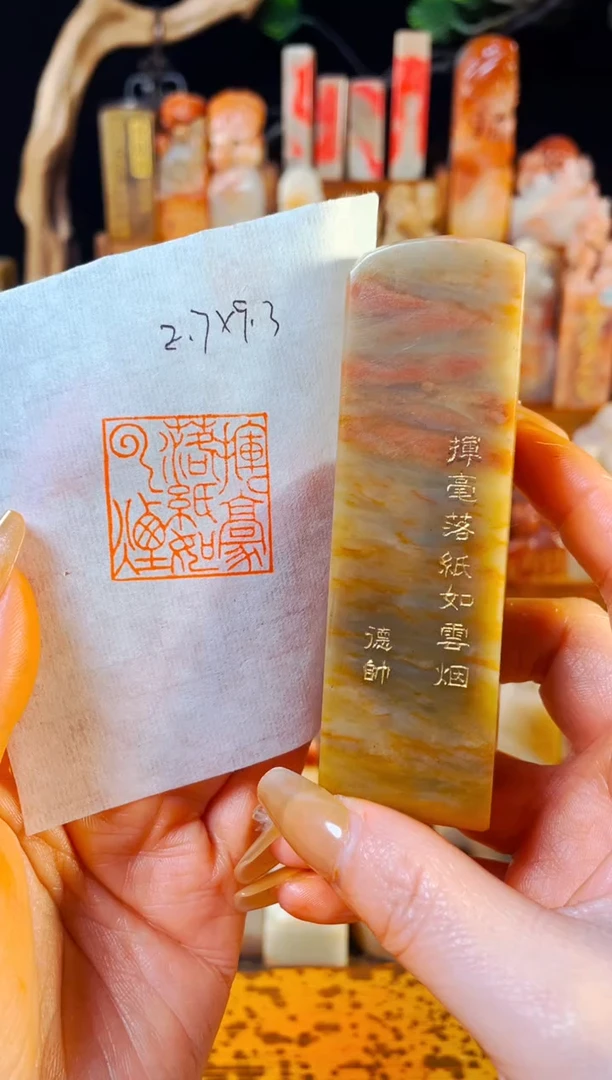 2.7X9.3
揮豪
落紙如
云煙
揮毫落紙如雲烟
德帥